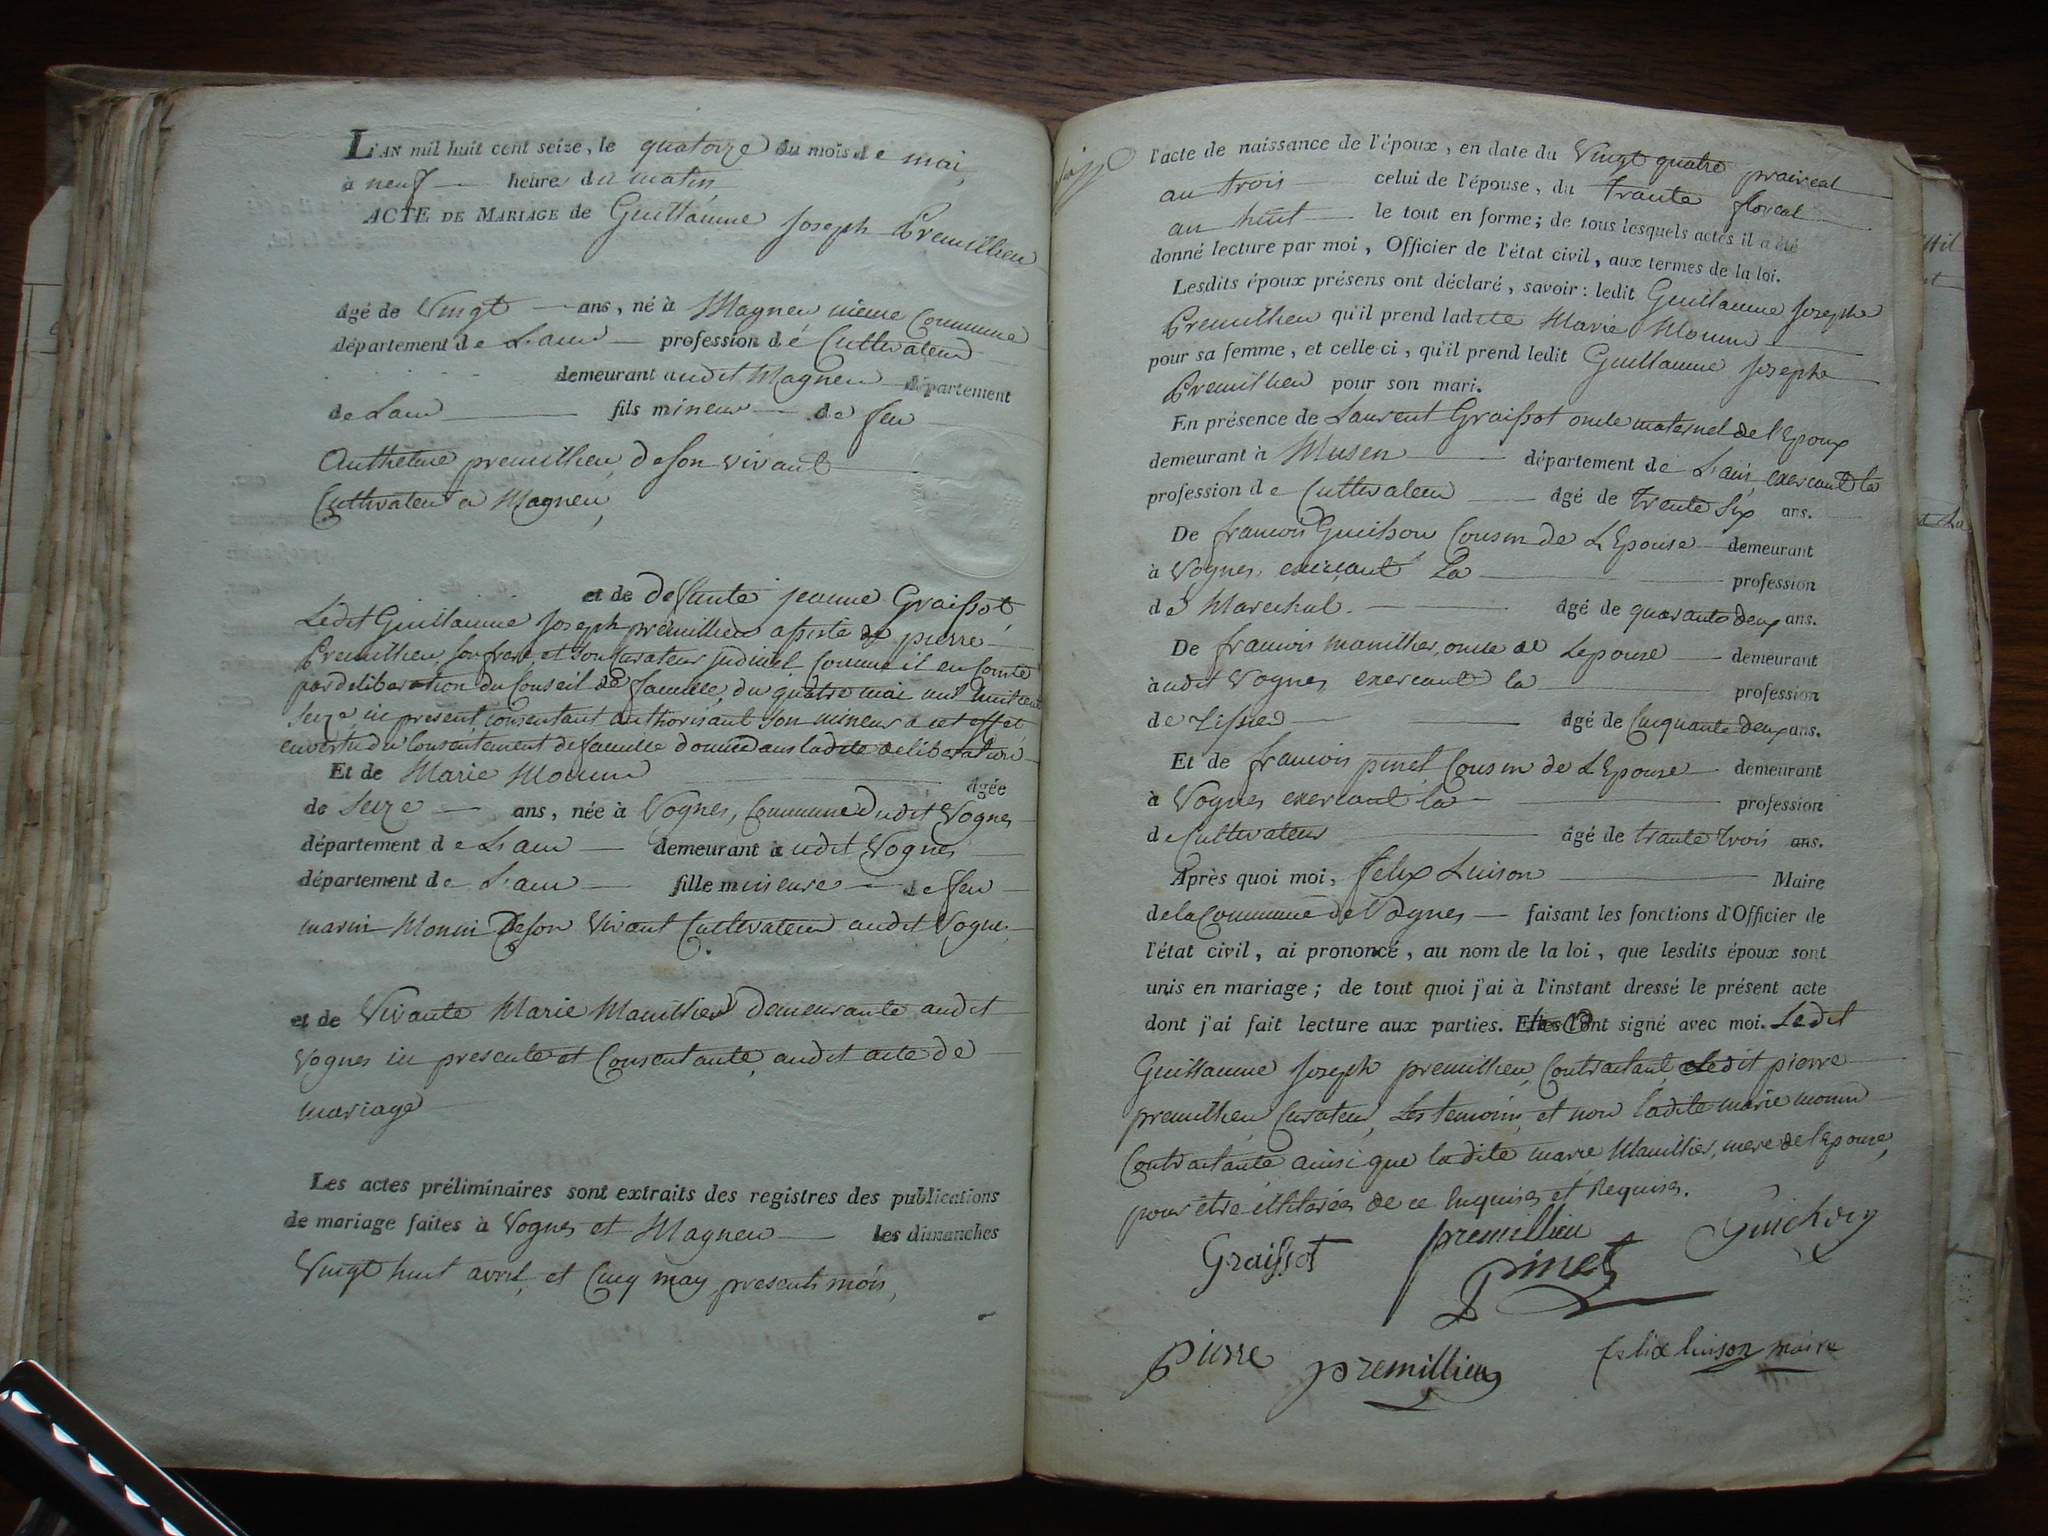 L'AN mil huit cent seize, le quatorze du mois de mai,
à neuf heure du matin
ACTE DE MARIAGE de Guillaume Joseph Premillieu
âgé de Vingt ans, né à Magneu même Commune
département de L'ain profession de Cultivateur
demeurant audit Magneu département
de Lain fils mineur de feu
Anthelme premillieu de son vivant
Cultivateur a Magneu,
et de defunte jeanne Graissot,
Ledit Guillaume Joseph premillieu assisté de pierre
Premillieu, son frere, et son Curateur judiciel Comme il en Conte
par deliberation du Conseil de famille, du quatre mai mil huit cent
Seize ici present Consentant authorisant son mineur a cet effet
en vertu du Consentement de famille donné dans ladite deliberation
Et de Marie Monin âgée
de Seize ans, née à Vognes, Commune dudit Vognes
département de L'ain demeurant audit Vognes
département de L'ain fille mineure de feu
marin Monin De son Vivant Cultivateur audit Vognes
et de Vivante Marie Manillier Demeurante audit
Vognes ici presente et Consentante, audit acte de
mariage
Les actes préliminaires sont extraits des registres des publications
de mariage faites à Vognes et Magneu les dimanches
Vingt huit avril, et Cinq may, presents mois,
l'acte de naissance de l'époux, en date du Vingt quatre praireal
an trois celui de l'épouse, du trante floreal
an huit le tout en forme; de tous lesquels actes il a été
donné lecture par moi, Officier de l'état civil, aux termes de la loi.
Lesdits époux présens ont déclaré, savoir: ledit Guillaume Josephe
Premillieu qu'il prend ladite Marie Monin
pour sa femme, et celle ci, qu'il prend ledit Guillaume Josephe
Premillieu pour son mari.
En présence de Laurent Graissot oncle maternel de l'Epoux
demeurant à Musen département de L'ain, exercant la
profession de Cultivateur âgé de trente Six ans.
De francois Guichon, Cousin de L'Epouse demeurant
à Vognes, exercant La profession
de Marechal. âgé de quarante deux ans.
De francois manillier, oncle de Lepouse demeurant
audit Vognes exercant la profession
de âgé de Cinquante deux ans.
Et de francois pinet, Cousin de L'Epouse demeurant
à Vognes exercant la profession
de Cultivateur âgé de trante trois ans.
Après quoi moi, felix Luison Maire
de la Commune de Vognes faisant les fonctions d'Officier de
l'état civil, ai prononcé, au nom de la loi, que lesdits époux sont
unis en mariage; de tout quoi j'ai à l'instant dressé le présent acte
dont j'ai fait lecture aux parties. Elles l'ont signé avec moi. Ledit
Guillaume Joseph premillieu, Contractant, ledit pierre
premillieu, Curateur, Les temoins, et non ladite marie monin
Contractante ainsi que ladite marie Manillier, mere de l'Epouse,
pour être illitérées de ce Enquises et Requises.
Graissot premillieu Guichon
Pinet
pierre premillieu felix luison maire